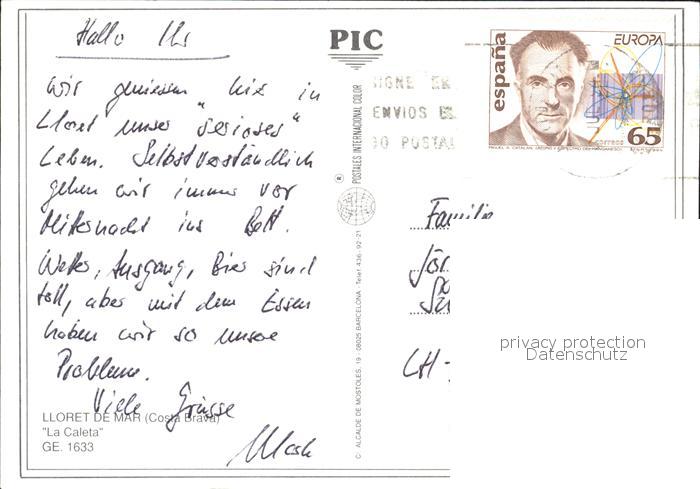 Hallo Ihr
wir geniessen hier in
Lloret unser "seriöses"
Leben. Selbstverständlich
gehen wir immer vor
Mitternacht ins Bett.
Wetter, Ausgang, Bier sind
toll, aber mit dem Essen
haben wir so unsere
Probleme.
Viele Grüsse
LLORET DE MAR (Costa Brava)
"La Caleta"
GE. 1633
PIC
POSTALES INTERNACIONAL COLOR
®
C/. ALCALDE DE MOSTOLES, 19 - 08025 BARCELONA - Telef 436-92-21
ENVIOS
POSTAL
españa
EUROPA
65
correos
Familie
CH-
privacy protection
Datenschutz